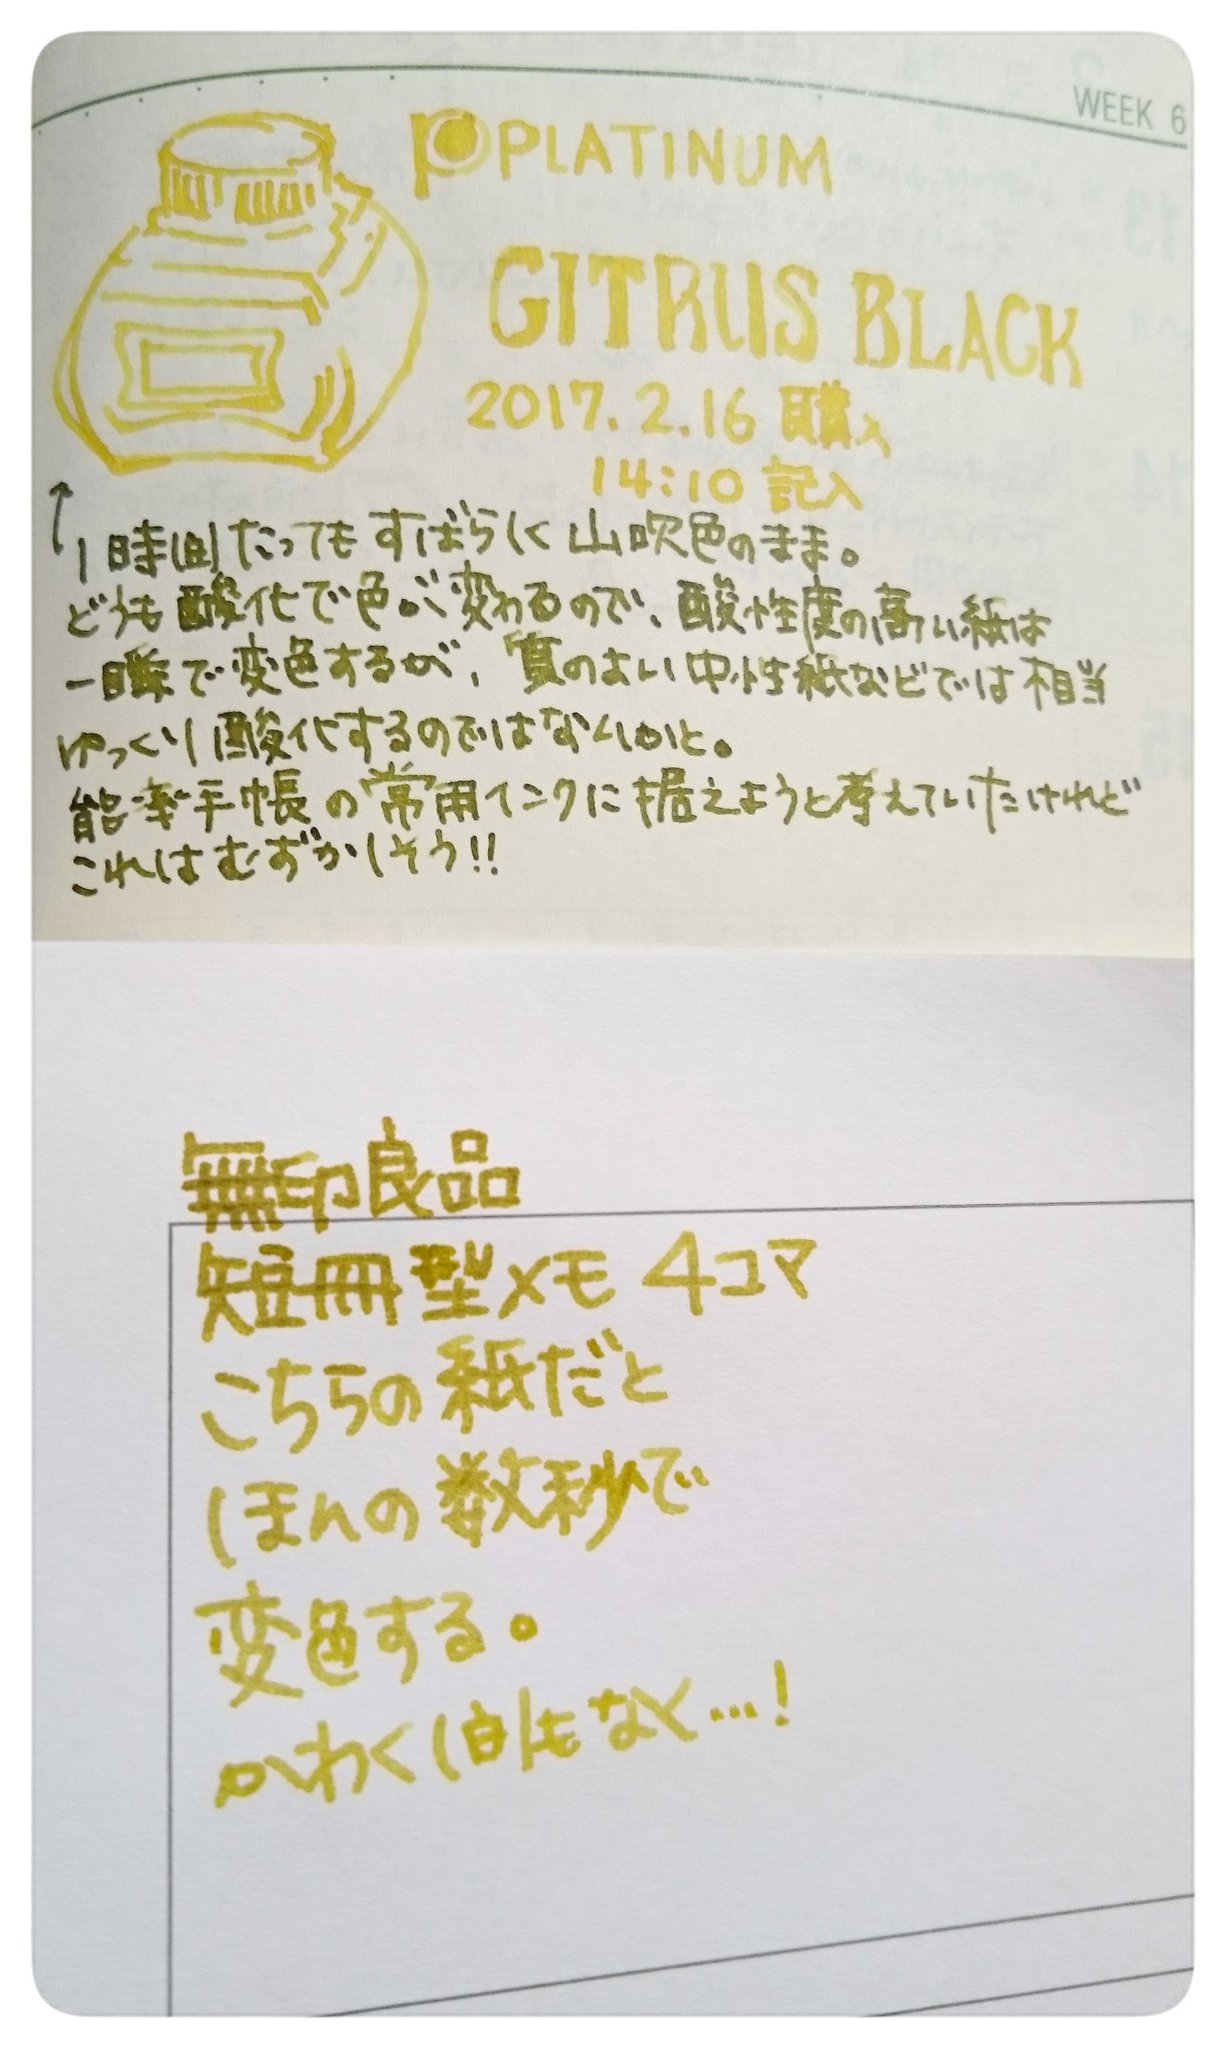 WEEK 6
PLATINUM
CITRUS BLACK
2017.2.16 購入
14:10 記入
↑1時間たってもすばらしく山吹色のまま。
どうも酸化で色が変わるので、酸性度の高い紙は
一瞬で変色するが、質のよい中性紙などでは相当
ゆっくり酸化するのではないかと。
能率手帳の常用インクに据えようと考えていたけれど
これはむずかしそう!!
無印良品
短冊型メモ 4コマ
こちらの紙だと
ほんの数秒で
変色する。
かわく間もなく…!